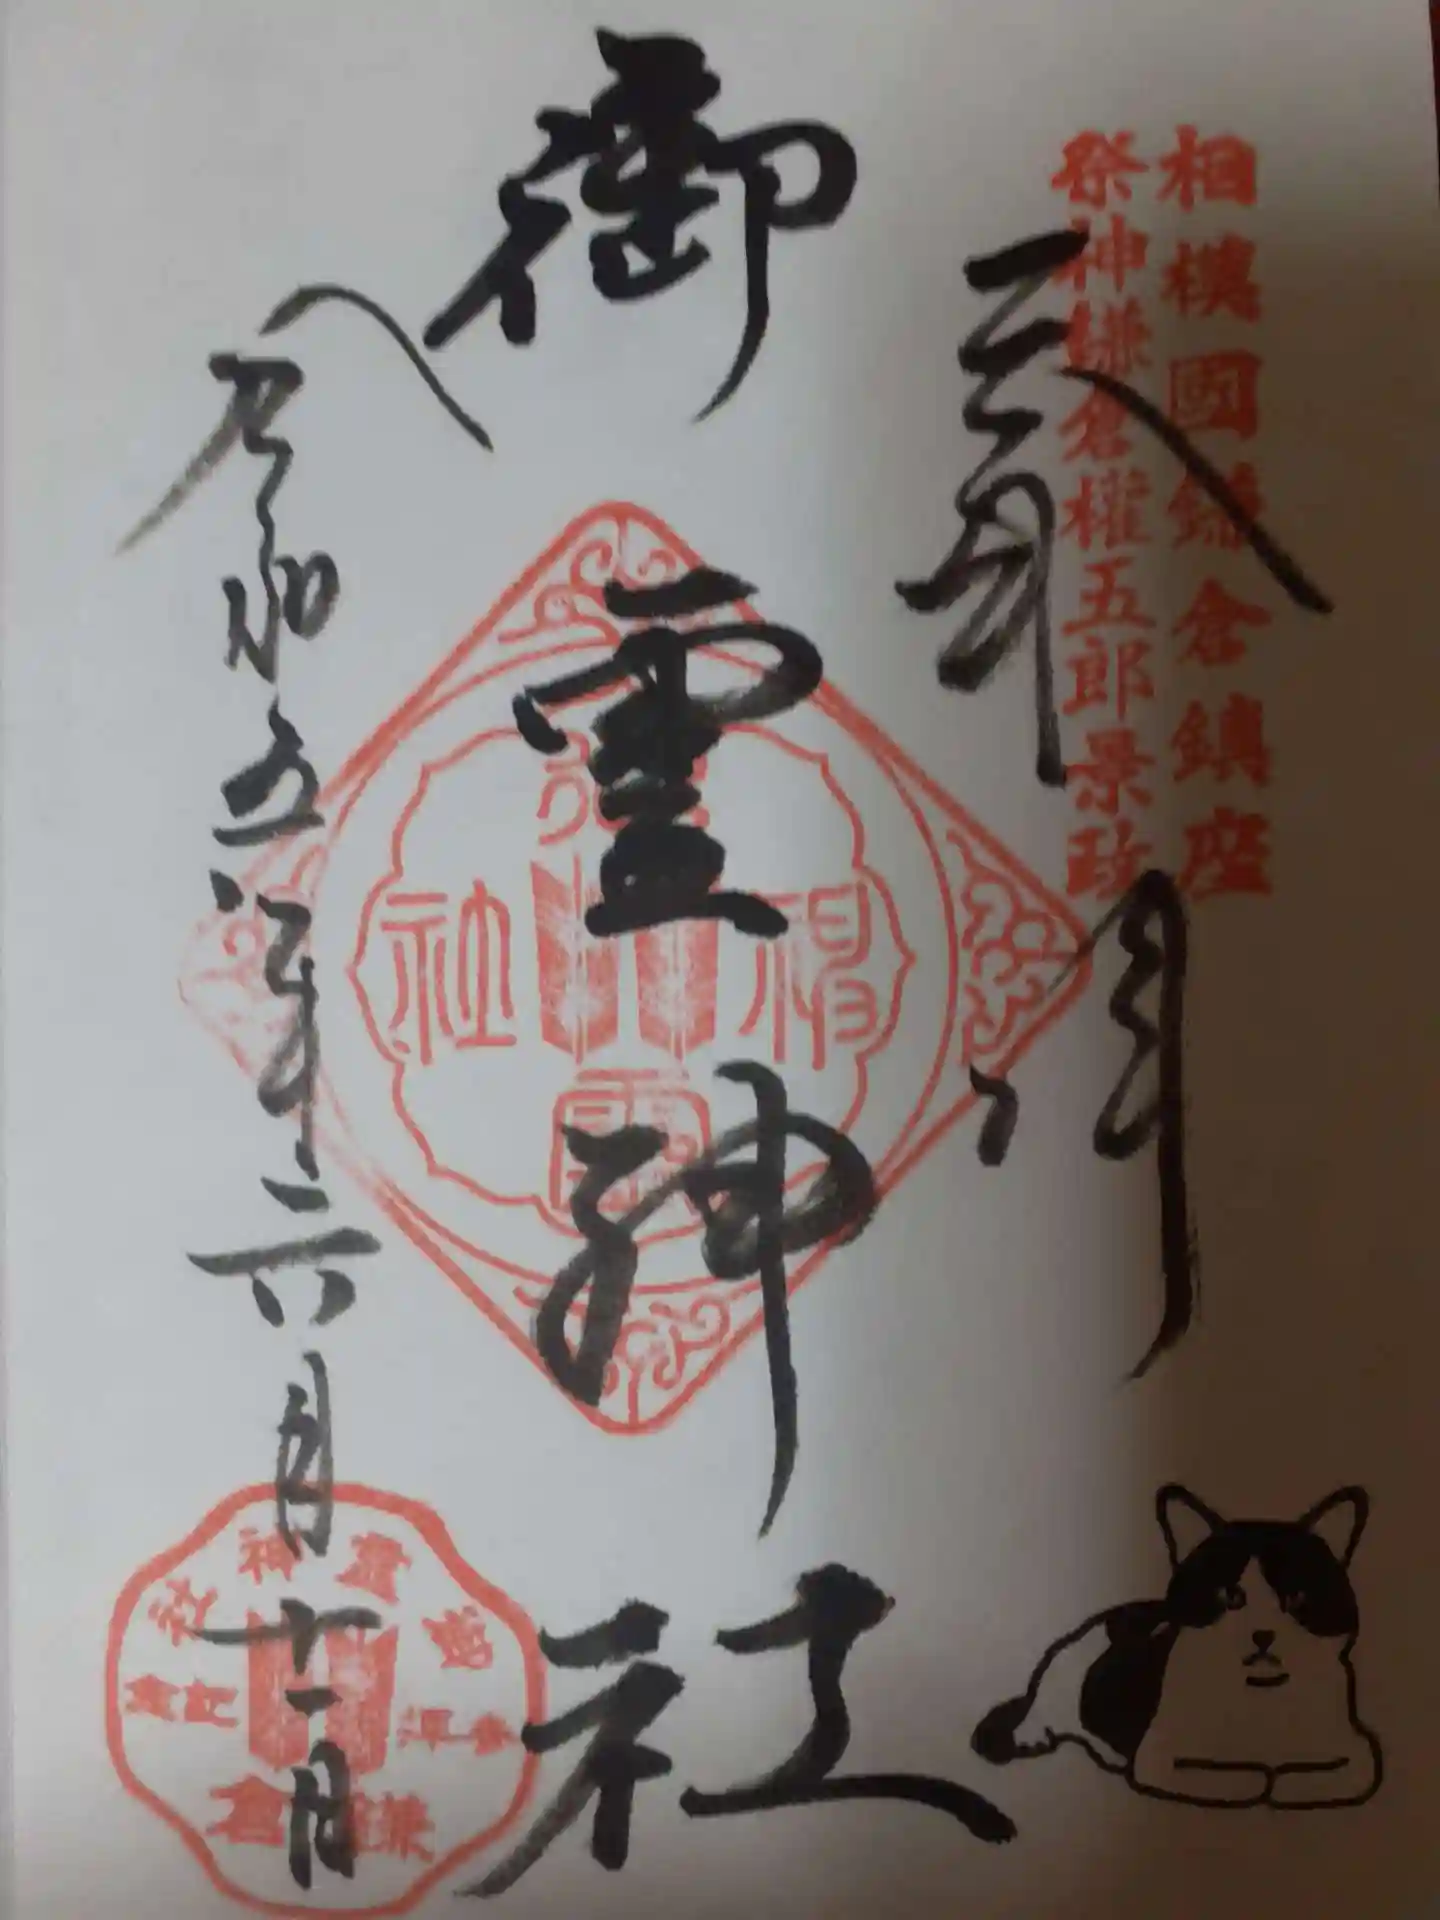 相模國鎌倉鎮座
祭神鎌倉權五郎景政
奉拝
御霊神社
令和五年六月十一日
神社
御霊神社
鎌倉
参拝